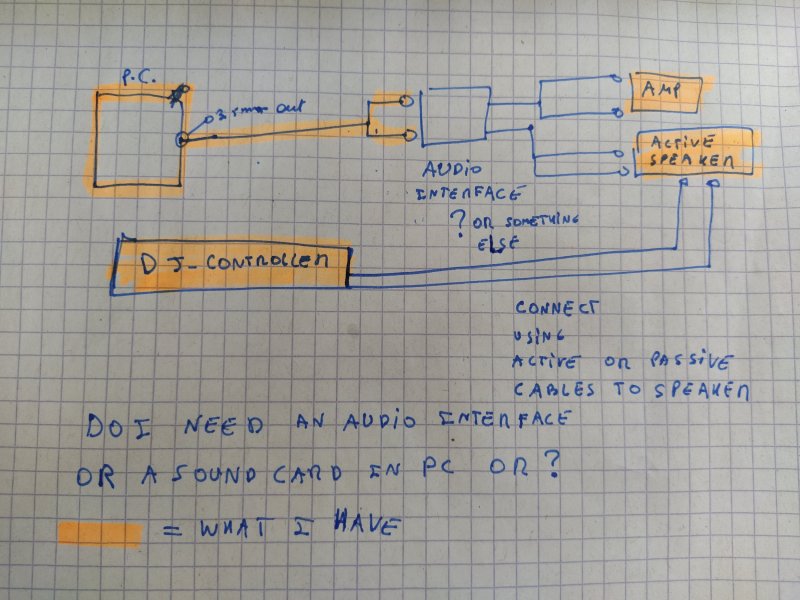 P.C.
out
AMP
ACTIVE
SPEAKER
AUDIO
INTERFACE
? OR SOMETHING
ELSE
DJ-CONTROLLER
CONNECT
USING
ACTIVE OR PASSIVE
CABLES TO SPEAKER
DO I NEED AN AUDIO INTERFACE
OR A SOUND CARD IN PC OR?
= WHAT I HAVE